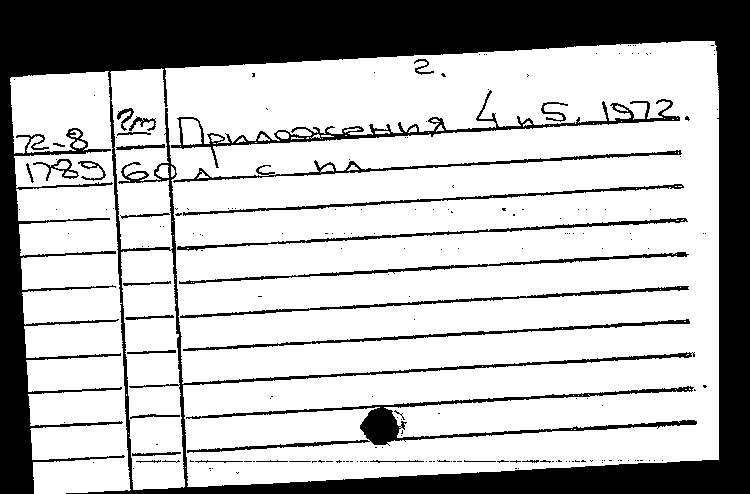 2.
72-8 Приложения 4 и 5. 1972.
1789 60 л с ил